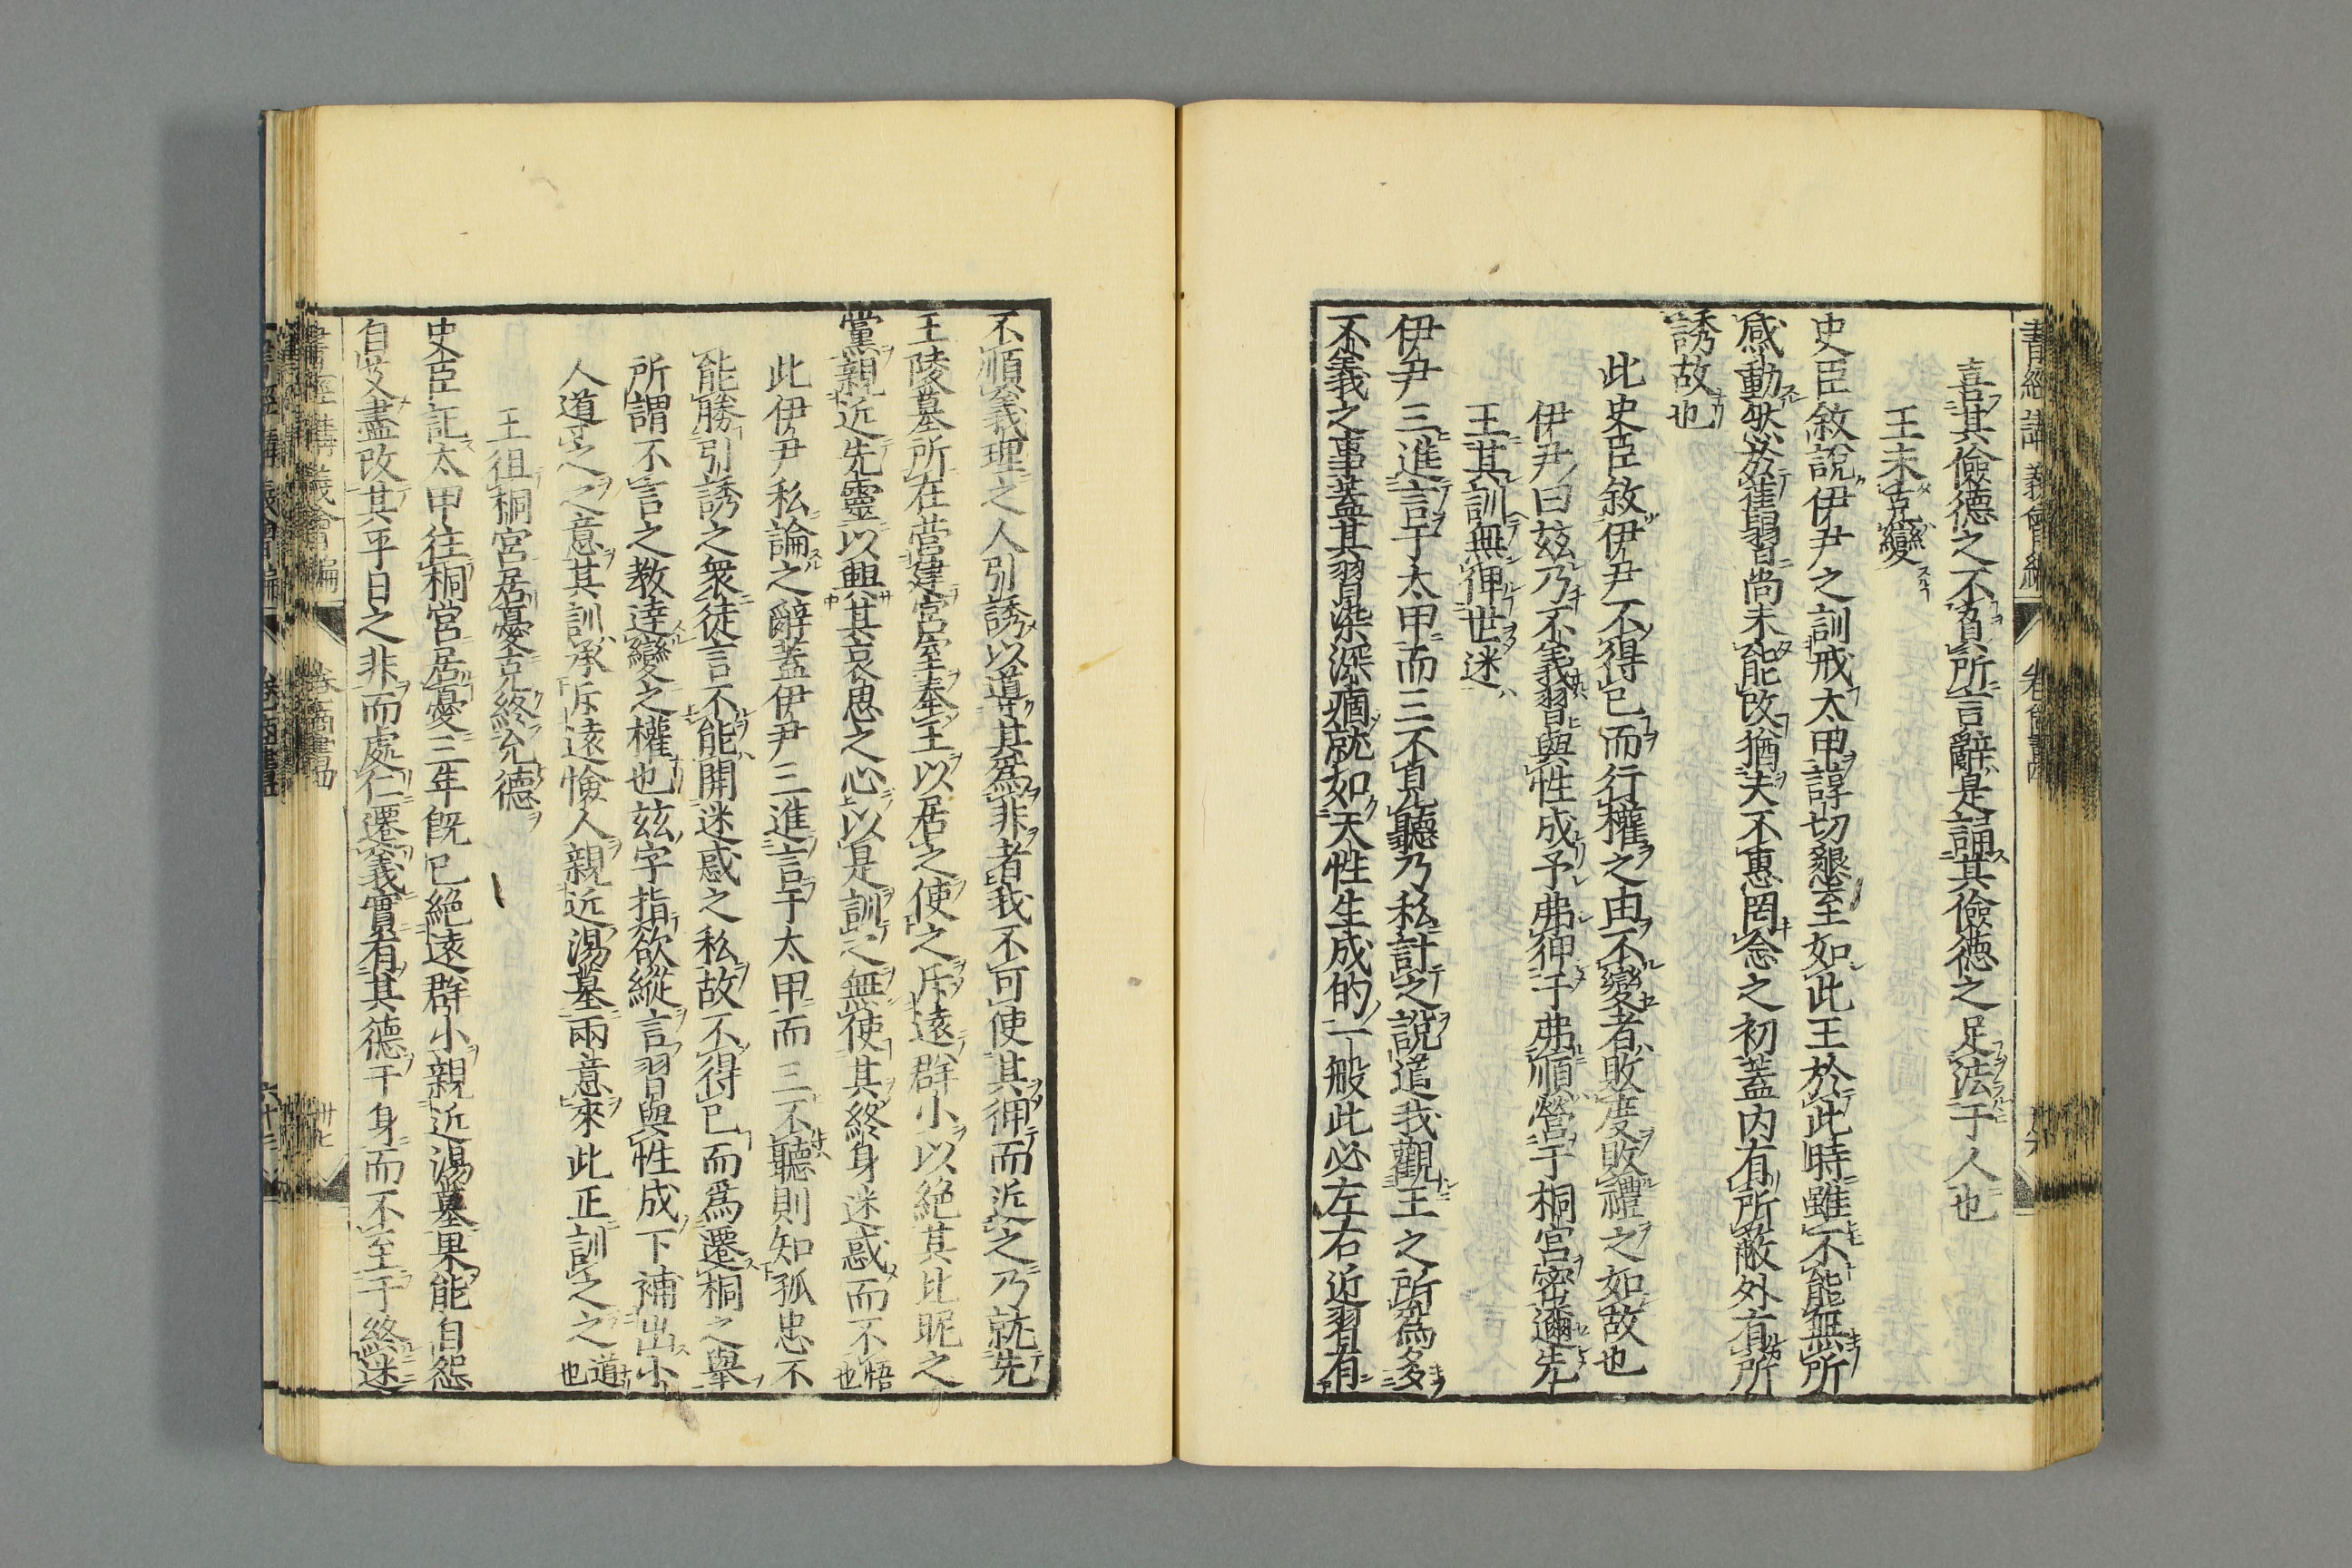 喜其儉德之不負所言辭是誦其儉德之足法于人也
王未克變
史臣敘說伊尹之訓戒太甲諄切懇至如此王於此時雖不能無所
感動然舊習尚未能改猶夫不惠罔念之初蓋内有所蔽外有所
誘故也
此史臣敘伊尹不得已而行權之由不變者敗度敗禮之如故也
伊尹曰茲乃不義習與性成予弗狎于弗順營于桐宮密邇先
王其訓無俾世迷
伊尹三進言于太甲而三不見聽乃私計之說道我觀王之所為多
不義之事蓋其習染深痼就如天性生成的一般此必左右近習有
不順義理之人引誘以導其為非者我不可使其狎而近之乃就先
王陵墓所在营建宮室奉王以居之使之斥遠群小以絕其比昵之
黨親近先靈以興其哀思之心以是訓之無使其終身迷惑而不悟也
此伊尹私論之辭蓋伊尹三進言于太甲而三不聽則知孤忠不
能勝引誘之衆徒言不能開迷惑之私故不得已而為遷桐之舉
所謂不言之教達變之權也茲字指欲縱言習與性成下補出小
人導之之意其訓承斥遠憸人親近湯墓兩意來此正訓之之道也
王徂桐宮居憂克終允德
史臣記太甲往桐宮居憂三年旣已絕遠群小親近湯墓果能自怨
自艾盡改其平日之非而處仁遷義實有其德于身而不至于終迷
書經講義會編 卷商書四 卅七